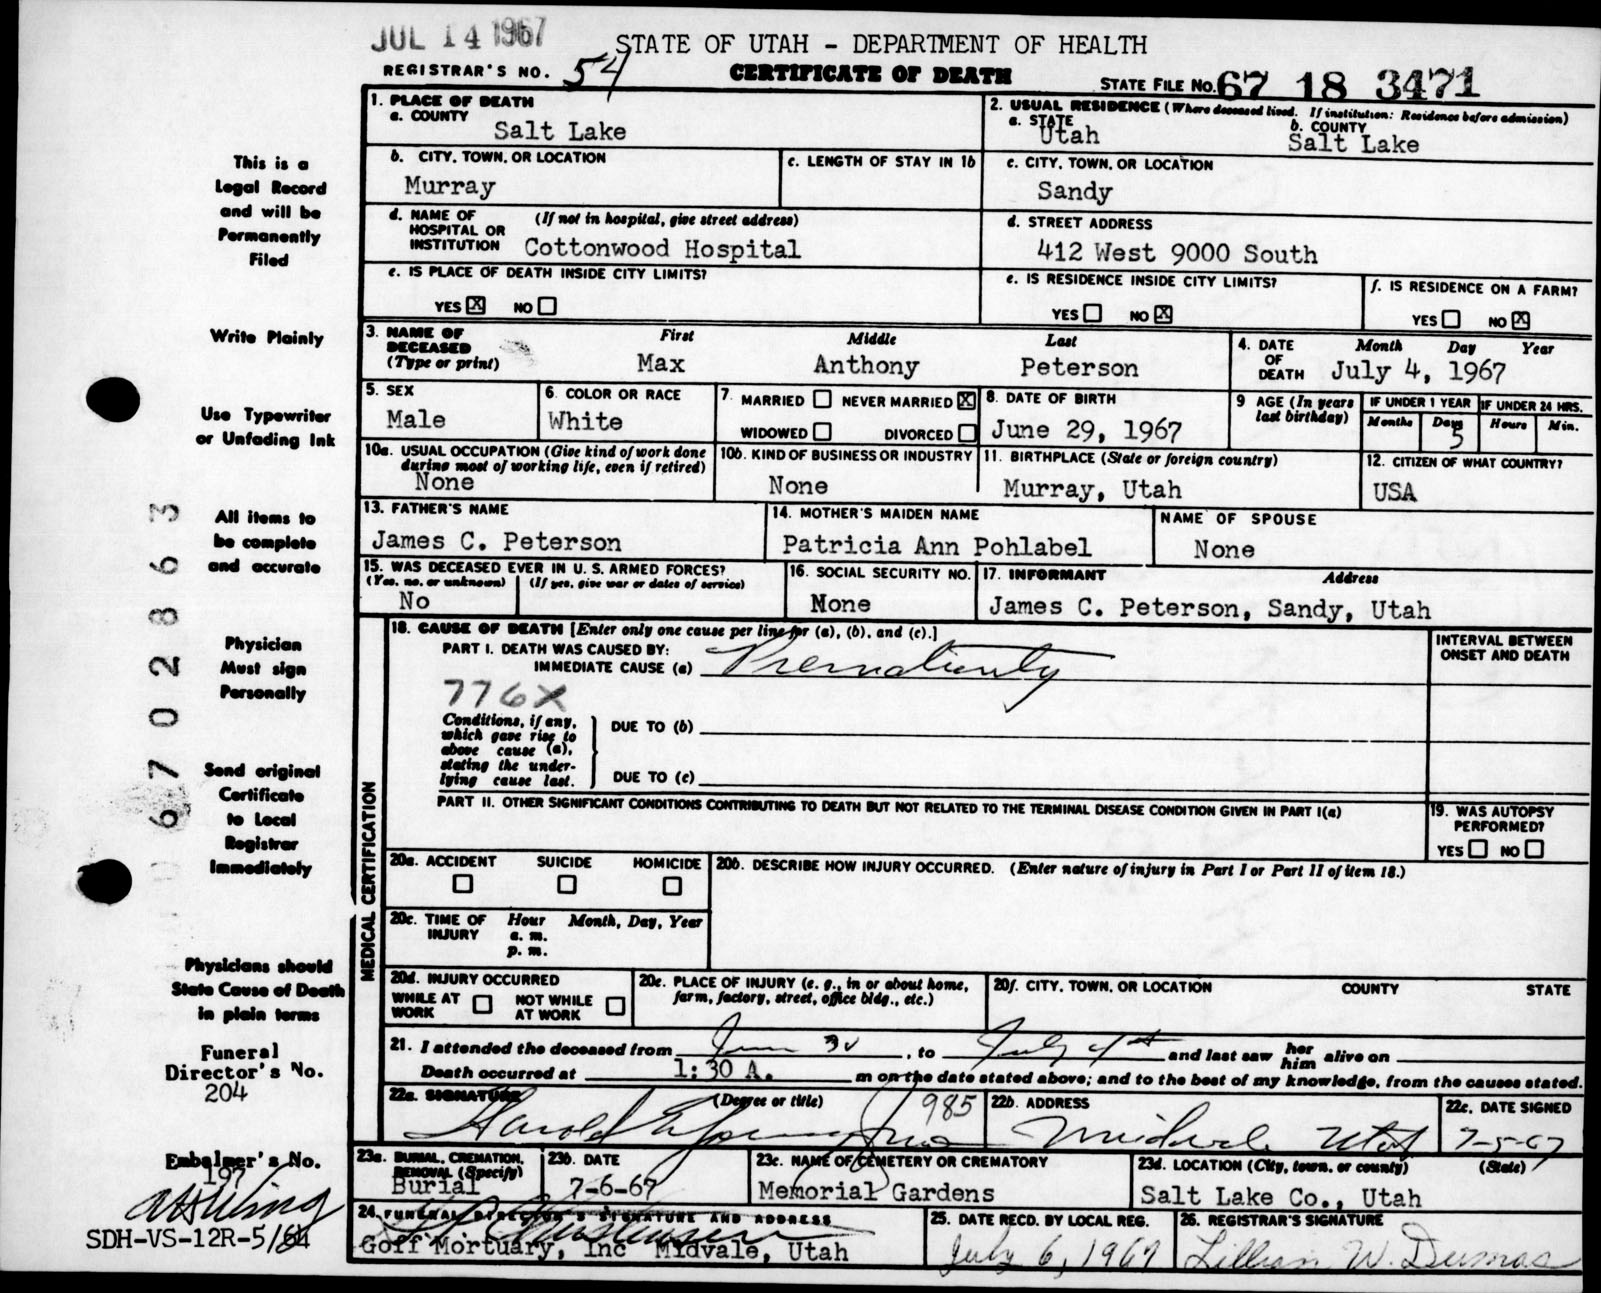 JUL 14 1967
STATE OF UTAH - DEPARTMENT OF HEALTH
REGISTRAR'S NO. 54
CERTIFICATE OF DEATH
STATE FILE NO. 67 18 3471
1. PLACE OF DEATH
a. COUNTY
Salt Lake
2. USUAL RESIDENCE (Where deceased lived. If institution: Residence before admission)
a. STATE
Utah
b. COUNTY
Salt Lake
b. CITY, TOWN, OR LOCATION
Murray
c. LENGTH OF STAY IN 1b
c. CITY, TOWN, OR LOCATION
Sandy
d. NAME OF HOSPITAL OR INSTITUTION (If not in hospital, give street address)
Cottonwood Hospital
d. STREET ADDRESS
412 West 9000 South
e. IS PLACE OF DEATH INSIDE CITY LIMITS?
YES X NO
e. IS RESIDENCE INSIDE CITY LIMITS?
YES NO X
f. IS RESIDENCE ON A FARM?
YES NO X
3. NAME OF DECEASED (Type or print)
First Middle Last
Max Anthony Peterson
4. DATE OF DEATH
Month Day Year
July 4, 1967
5. SEX
Male
6. COLOR OR RACE
White
7. MARRIED NEVER MARRIED X
WIDOWED DIVORCED
8. DATE OF BIRTH
June 29, 1967
9 AGE (In years last birthday)
IF UNDER 1 YEAR IF UNDER 24 HRS.
Months Days Hours Min.
5
10a. USUAL OCCUPATION (Give kind of work done during most of working life, even if retired)
None
10b. KIND OF BUSINESS OR INDUSTRY
None
11. BIRTHPLACE (State or foreign country)
Murray, Utah
12. CITIZEN OF WHAT COUNTRY?
USA
13. FATHER'S NAME
James C. Peterson
14. MOTHER'S MAIDEN NAME
Patricia Ann Pohlabel
NAME OF SPOUSE
None
15. WAS DECEASED EVER IN U. S. ARMED FORCES?
(Yes, no, or unknown) (If yes, give war or dates of service)
No
16. SOCIAL SECURITY NO.
None
17. INFORMANT Address
James C. Peterson, Sandy, Utah
MEDICAL CERTIFICATION
18. CAUSE OF DEATH [Enter only one cause per line for (a), (b), and (c).]
PART I. DEATH WAS CAUSED BY:
IMMEDIATE CAUSE (a) Prematurity
776X
Conditions, if any, which gave rise to above cause (a), stating the underlying cause last.
DUE TO (b)
DUE TO (c)
INTERVAL BETWEEN ONSET AND DEATH
PART II. OTHER SIGNIFICANT CONDITIONS CONTRIBUTING TO DEATH BUT NOT RELATED TO THE TERMINAL DISEASE CONDITION GIVEN IN PART I(a)
19. WAS AUTOPSY PERFORMED?
YES NO
20a. ACCIDENT SUICIDE HOMICIDE
20b. DESCRIBE HOW INJURY OCCURRED. (Enter nature of injury in Part I or Part II of item 18.)
20c. TIME OF INJURY
Hour Month, Day, Year
a. m.
p. m.
20d. INJURY OCCURRED
WHILE AT WORK NOT WHILE AT WORK
20e. PLACE OF INJURY (e. g., in or about home, farm, factory, street, office bldg., etc.)
20f. CITY, TOWN, OR LOCATION COUNTY STATE
21. I attended the deceased from June 30, to July 4th and last saw her him alive on
Death occurred at 1:30 A. m on the date stated above; and to the best of my knowledge, from the causes stated.
22a. SIGNATURE (Degree or title) 985
Harold
22b. ADDRESS
Midvale Utah
22c. DATE SIGNED
7-5-67
23a. BURIAL, CREMATION, REMOVAL (Specify)
Burial
23b. DATE
7-6-67
23c. NAME OF CEMETERY OR CREMATORY
Memorial Gardens
23d. LOCATION (City, town, or county) (State)
Salt Lake Co., Utah
24. FUNERAL DIRECTOR'S SIGNATURE AND ADDRESS
Goff Mortuary, Inc Midvale, Utah
25. DATE RECD. BY LOCAL REG.
July 6, 1967
26. REGISTRAR'S SIGNATURE
Lillian W. Dumas
This is a
Legal Record
and will be
Permanently
Filed
Write Plainly
Use Typewriter
or Unfading Ink
All items to
be complete
and accurate
Physician
Must sign
Personally
Send original
Certificate
to Local
Registrar
Immediately
Physicians should
State Cause of Death
in plain terms
Funeral
Director's No.
204
Embalmer's No.
197
SDH-VS-12R-5/64
6702863